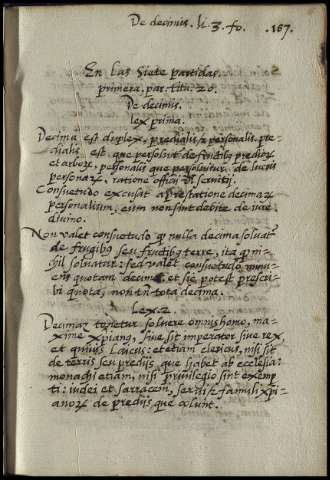 De decimis. li 3. fo. .187.
En las siete partidas.
primera. par. titu. 20.
De decimis.
lex prima.
Decima est duplex, predialis & personalis. pre-
dialis est que persoluitur de fructibus prediorum
et arborum, personalis que persoluitur de lucris
personarum ratione officij vel seruitij.
Consuetudo excusat a prestatione decimarum
personalium, cum non sint debite de iure
diuino.
Non valet consuetudo quod nulla decima soluatur
de frugibus seu fructibus terre, ita quod ni-
chil soluatur: sed valet consuetudo
quotam decime et sic potest prescri-
bi quota, non tamen tota decima.
Lex. 2.
Decimam tenetur soluere omnis homo, ma-
xime xpianus, siue sit imperator siue rex,
et quiuis laicus: et etiam clericus, nisi sit
de terris seu predijs que habet ab ecclesia:
monachi etiam, nisi priuilegio sint exemp-
ti: iudei et sarraceni, serui & familia xpi-
anorum de predijs que colunt.